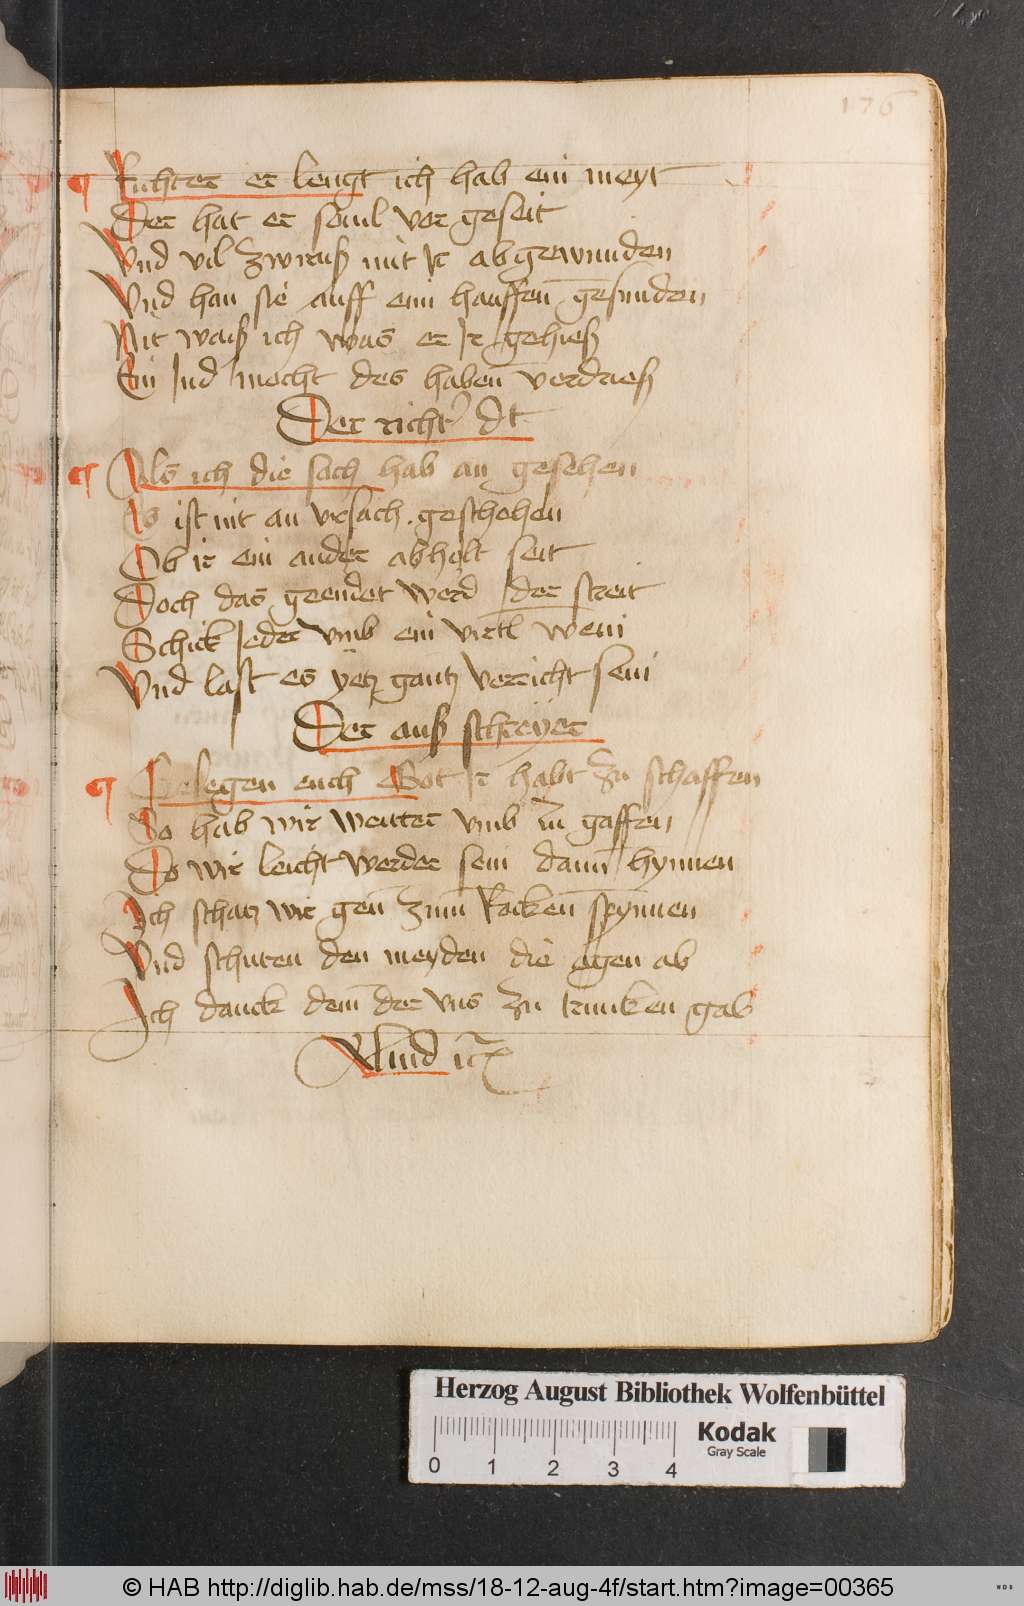 176
¶ Richter er leugt ich hab ein meyt
Der hat er souil vor geseit
Vnd vil zwirnß mit Ir abgewunden
Vnd han sie auff eim hauffen gefunden
Nit waiß ich was er Ir gehieß
Ein Jud mocht des haben verdrieß
Der richt' dt
¶ Als ich die sach hab an gesehen
Es ist nit an vrsach geschehen
Ob ir ein ander abholt seit
Doch das geendet werd der streit
Schick Jeder vmb ein virtl wein
Vnd last es yetz gantz verricht sein
Der auß schreyer
¶ Gesegen euch Got Ir habt zu schaffen
So hab wir weitter vmb zu gaffen
Do wir leicht werder sein dann hynnen
Ich schatz wir gen zum Rocken spynnen
Vnd schuten den meyden die agen ab
Ich danck dem der vns zu trincken gab
Herzog August Bibliothek Wolfenbüttel
Kodak
Gray Scale
0 1 2 3 4
© HAB http://diglib.hab.de/mss/18-12-aug-4f/start.htm?image=00365